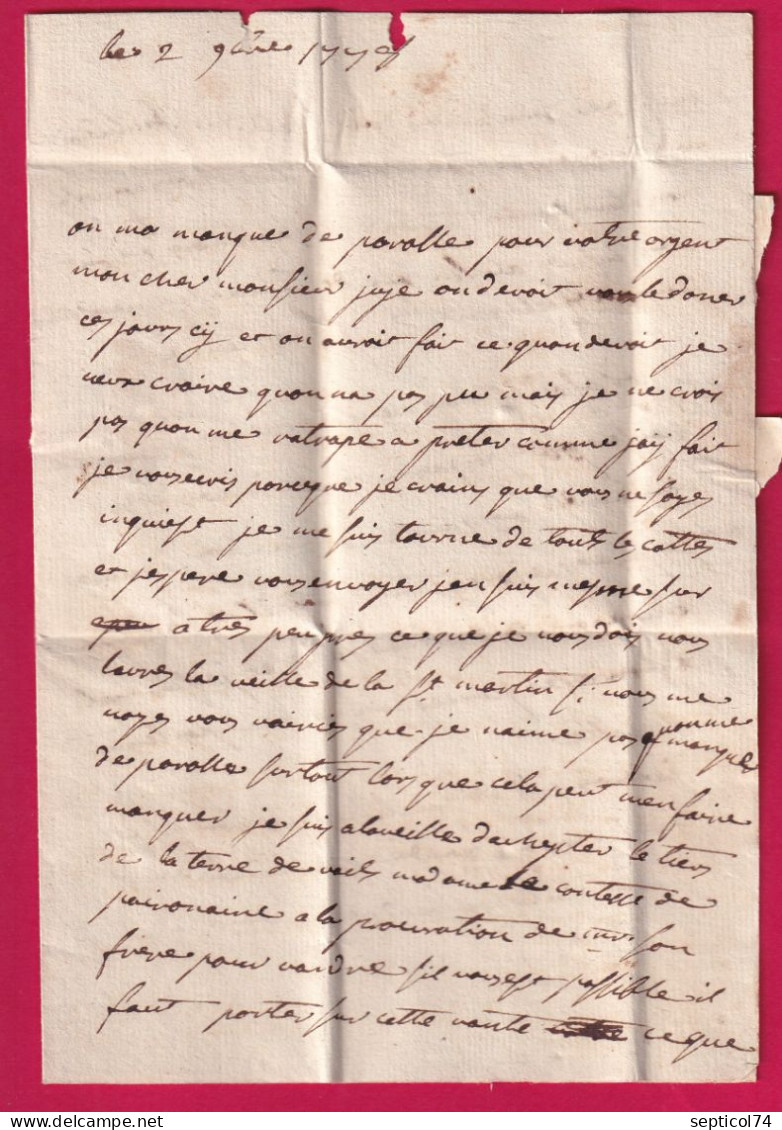 les 2 9bre
on ma manque de parolle pour votre argent
mon cher monsieur juje on devoit vous le doner
ces jours cÿ et on auroit fait ce quon devoit je
veux croire quon na pas peu mais je ne crois
pas quon me ratrape a preter comme jaÿ fait
je vous ecris parceque je crains que vous ne soyes
inquiest je me suis tourne de touts les cottes
et jespere vous envoyer jen suis mesme sur
a tres peu pres ce que je vous dois vous
laures la veille de la St martin si vous me
voyes vous vairies que je naime pas quon me manque
de parolle surtout lors que cela peut men faire
manquer je suis a la veille dachepter le tiers
de la terre de madame la contesse de
a la procuration de mr son
frere pour vandre sil vous est possible il
faut porter sur cette vante ce que
septicol74